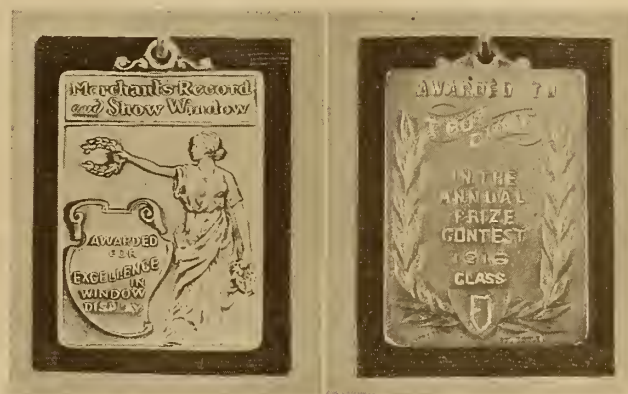 Merchants Record
and Show Window
AWARDED
FOR
EXCELLENCE
IN
WINDOW
DISPLAY
AWARDED TO
IN THE
ANNUAL
PRIZE
CONTEST
CLASS